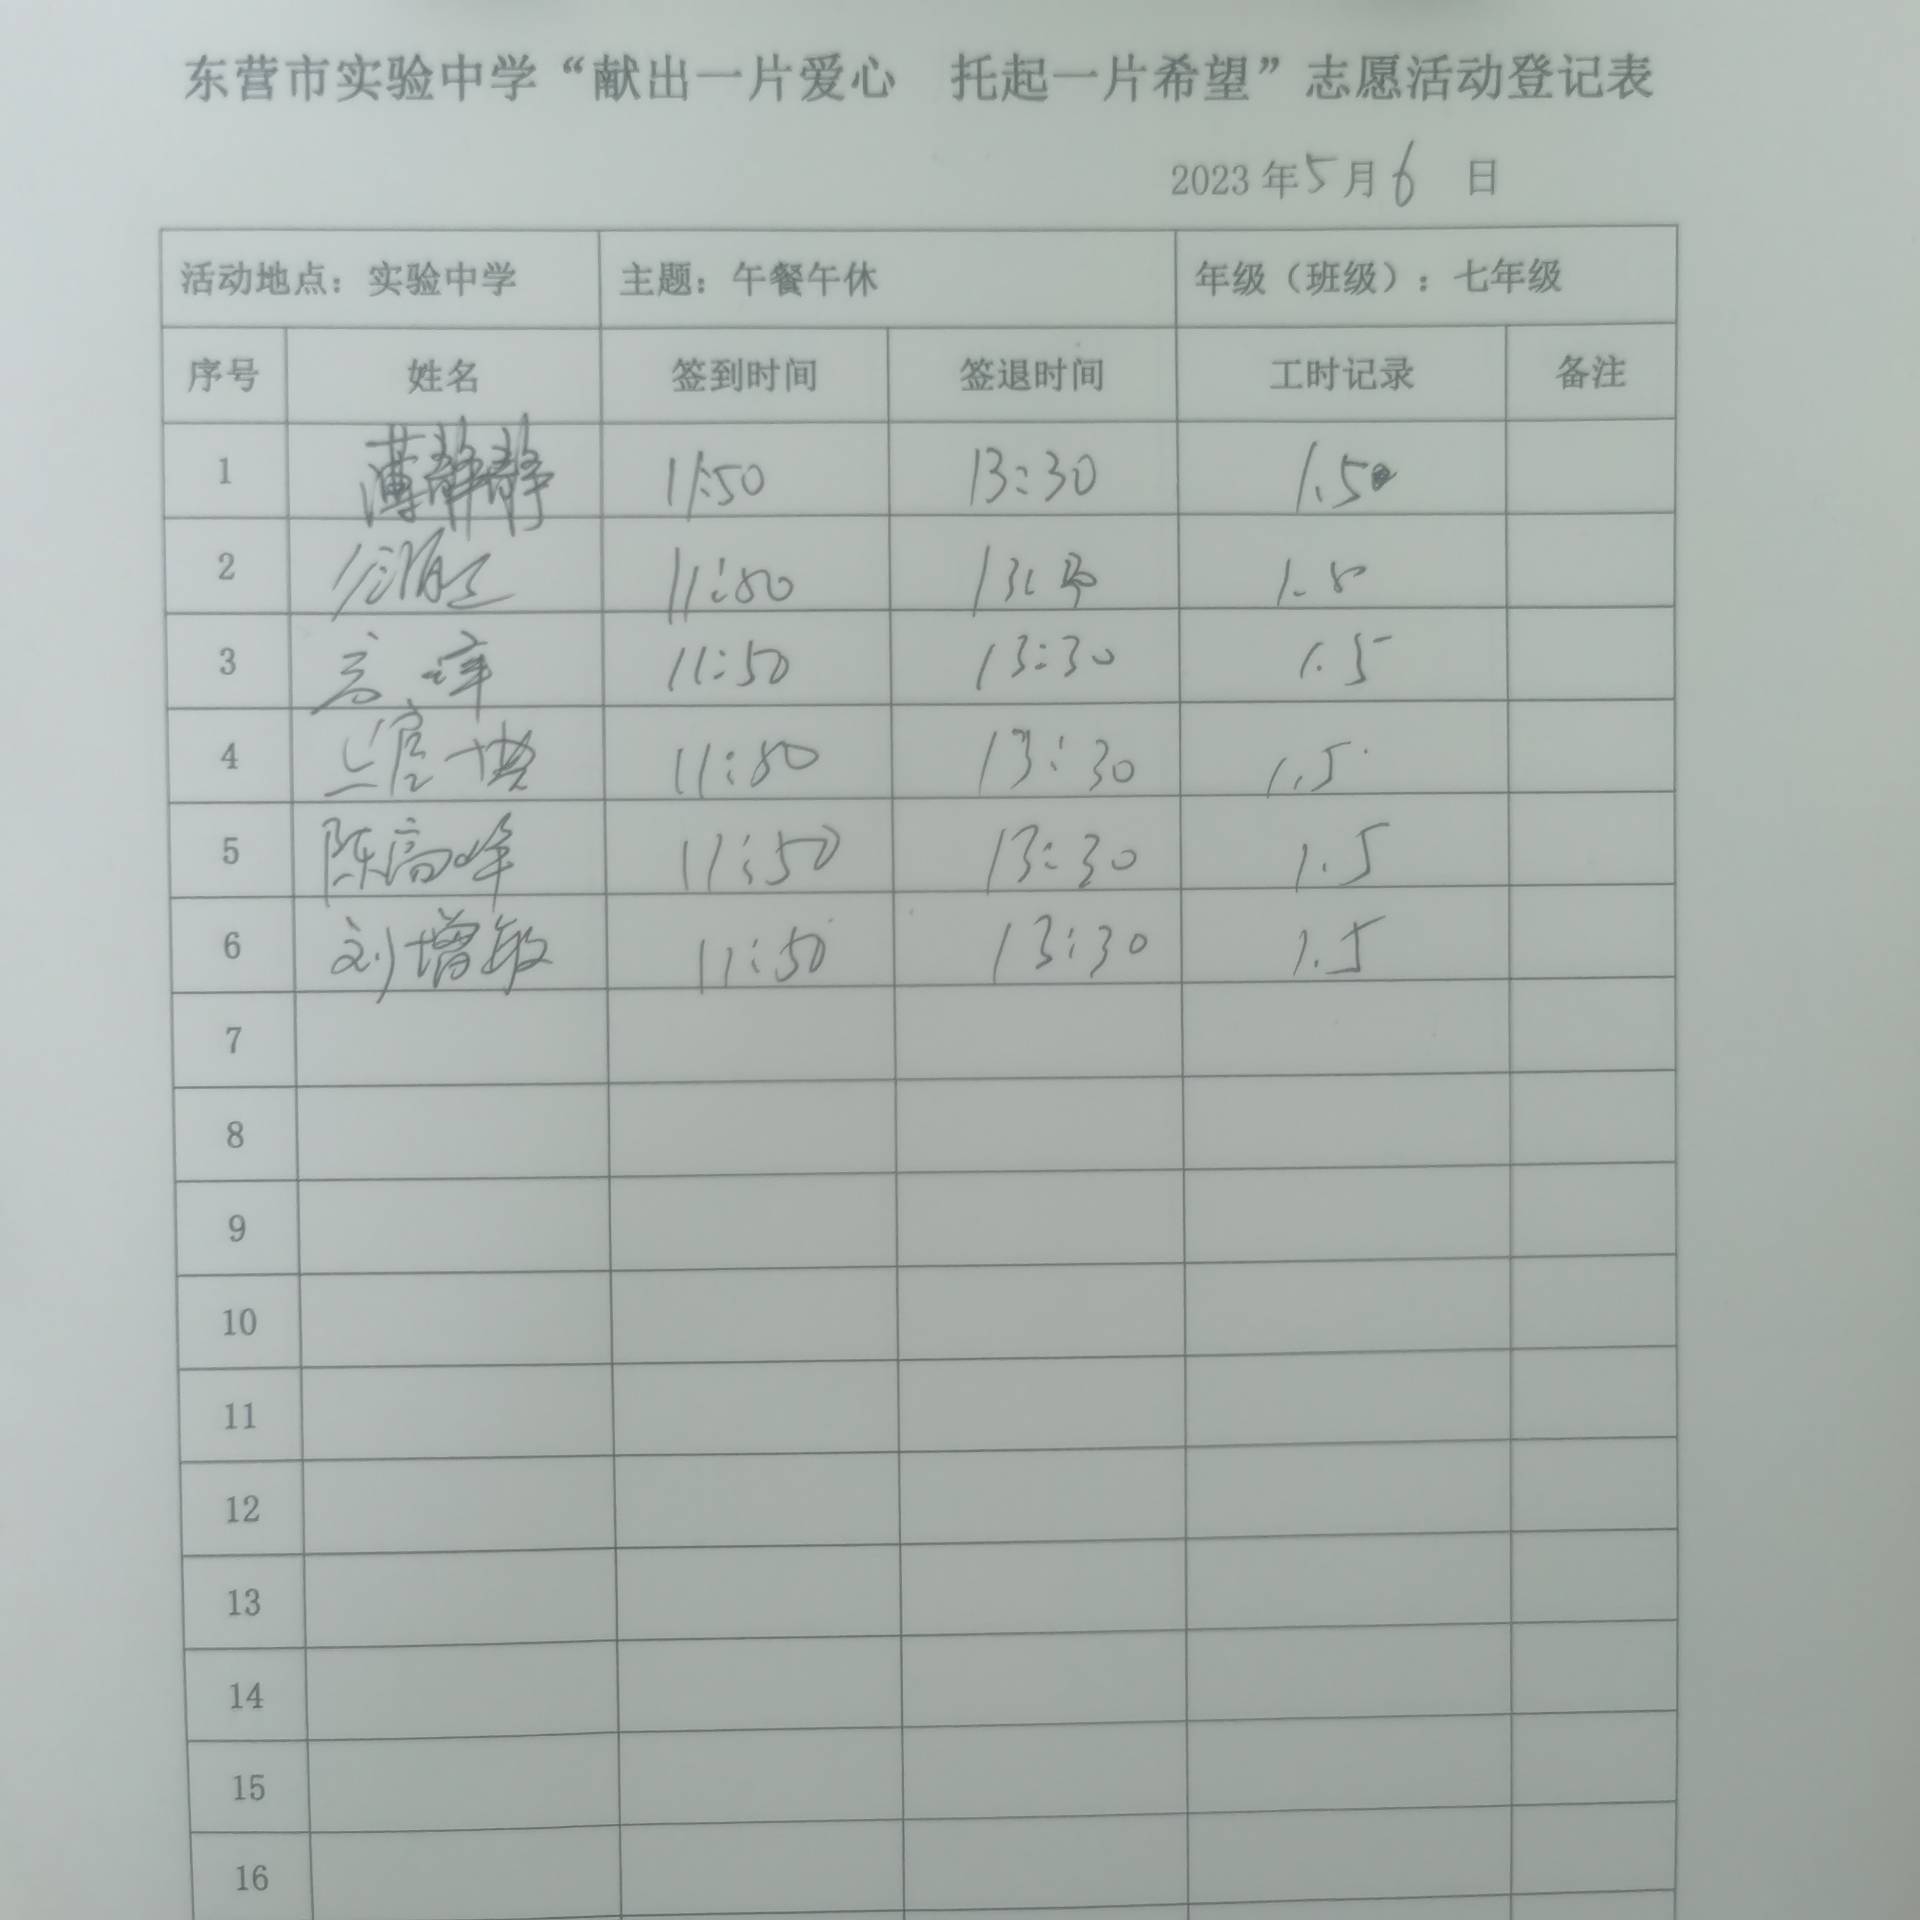 东营市实验中学“献出一片爱心　托起一片希望”志愿活动登记表
2023年5月6日
活动地点：实验中学 主题：午餐午休 年级（班级）：七年级
序号 姓名 签到时间 签退时间 工时记录 备注
1 薄静静 11:50 13:30 1.5
2 11:50 13:30 1.5
3 11:50 13:30 1.5
4 11:50 13:30 1.5
5 陈高峰 11:50 13:30 1.5
6 刘增敏 11:50 13:30 1.5
7
8
9
10
11
12
13
14
15
16